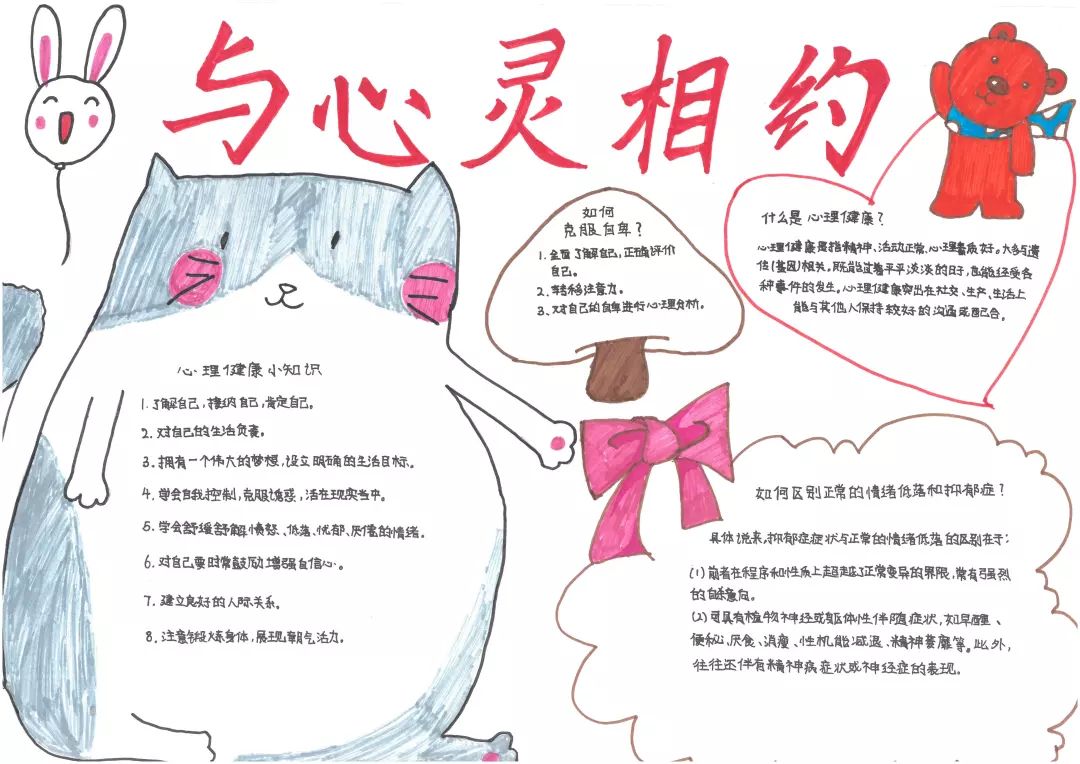 与心灵相约
心理健康小知识
1.了解自己，接纳自己，肯定自己。
2.对自己的生活负责。
3.拥有一个伟大的梦想，设立明确的生活目标。
4.学会自我控制，克服诱惑，活在现实当中。
5.学会舒缓舒解愤怒、低落、忧郁、厌倦的情绪。
6.对自己要时常鼓励增强自信心。
7.建立良好的人际关系。
8.注意锻炼身体，展现朝气活力。
如何
克服自卑？
1.全面了解自己，正确评价
自己。
2.转移注意力。
3.对自己的自卑进行心理分析。
什么是心理健康？
心理健康是指精神、活动正常、心理素质好。大多与遗
传(基因)相关。既能过着平平淡淡的日子，也能经受各
种事件的发生。心理健康突出在社交、生产、生活上
能与其他人保持较好的沟通或配合。
如何区别正常的情绪低落和抑郁症？
具体说来，抑郁症症状与正常的情绪低落的区别在于：
(1)前者在程序和性质上超越了正常变异的界限，常有强烈
的自杀意向。
(2)可具有植物神经或躯体性伴随症状，如早醒、
便秘、厌食、消瘦、性机能减退、精神萎靡等。此外，
往往还伴有精神病症状或神经症的表现。